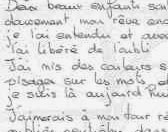 Deux beaux enfants son
doucement mon rêve en
je l'ai entendu et avec
l'ai libéré de l'oubli
J'ai mis des couleurs s
visages sur les mots, d
je suis là aujourd'hui
J'aimerais à mon tour r